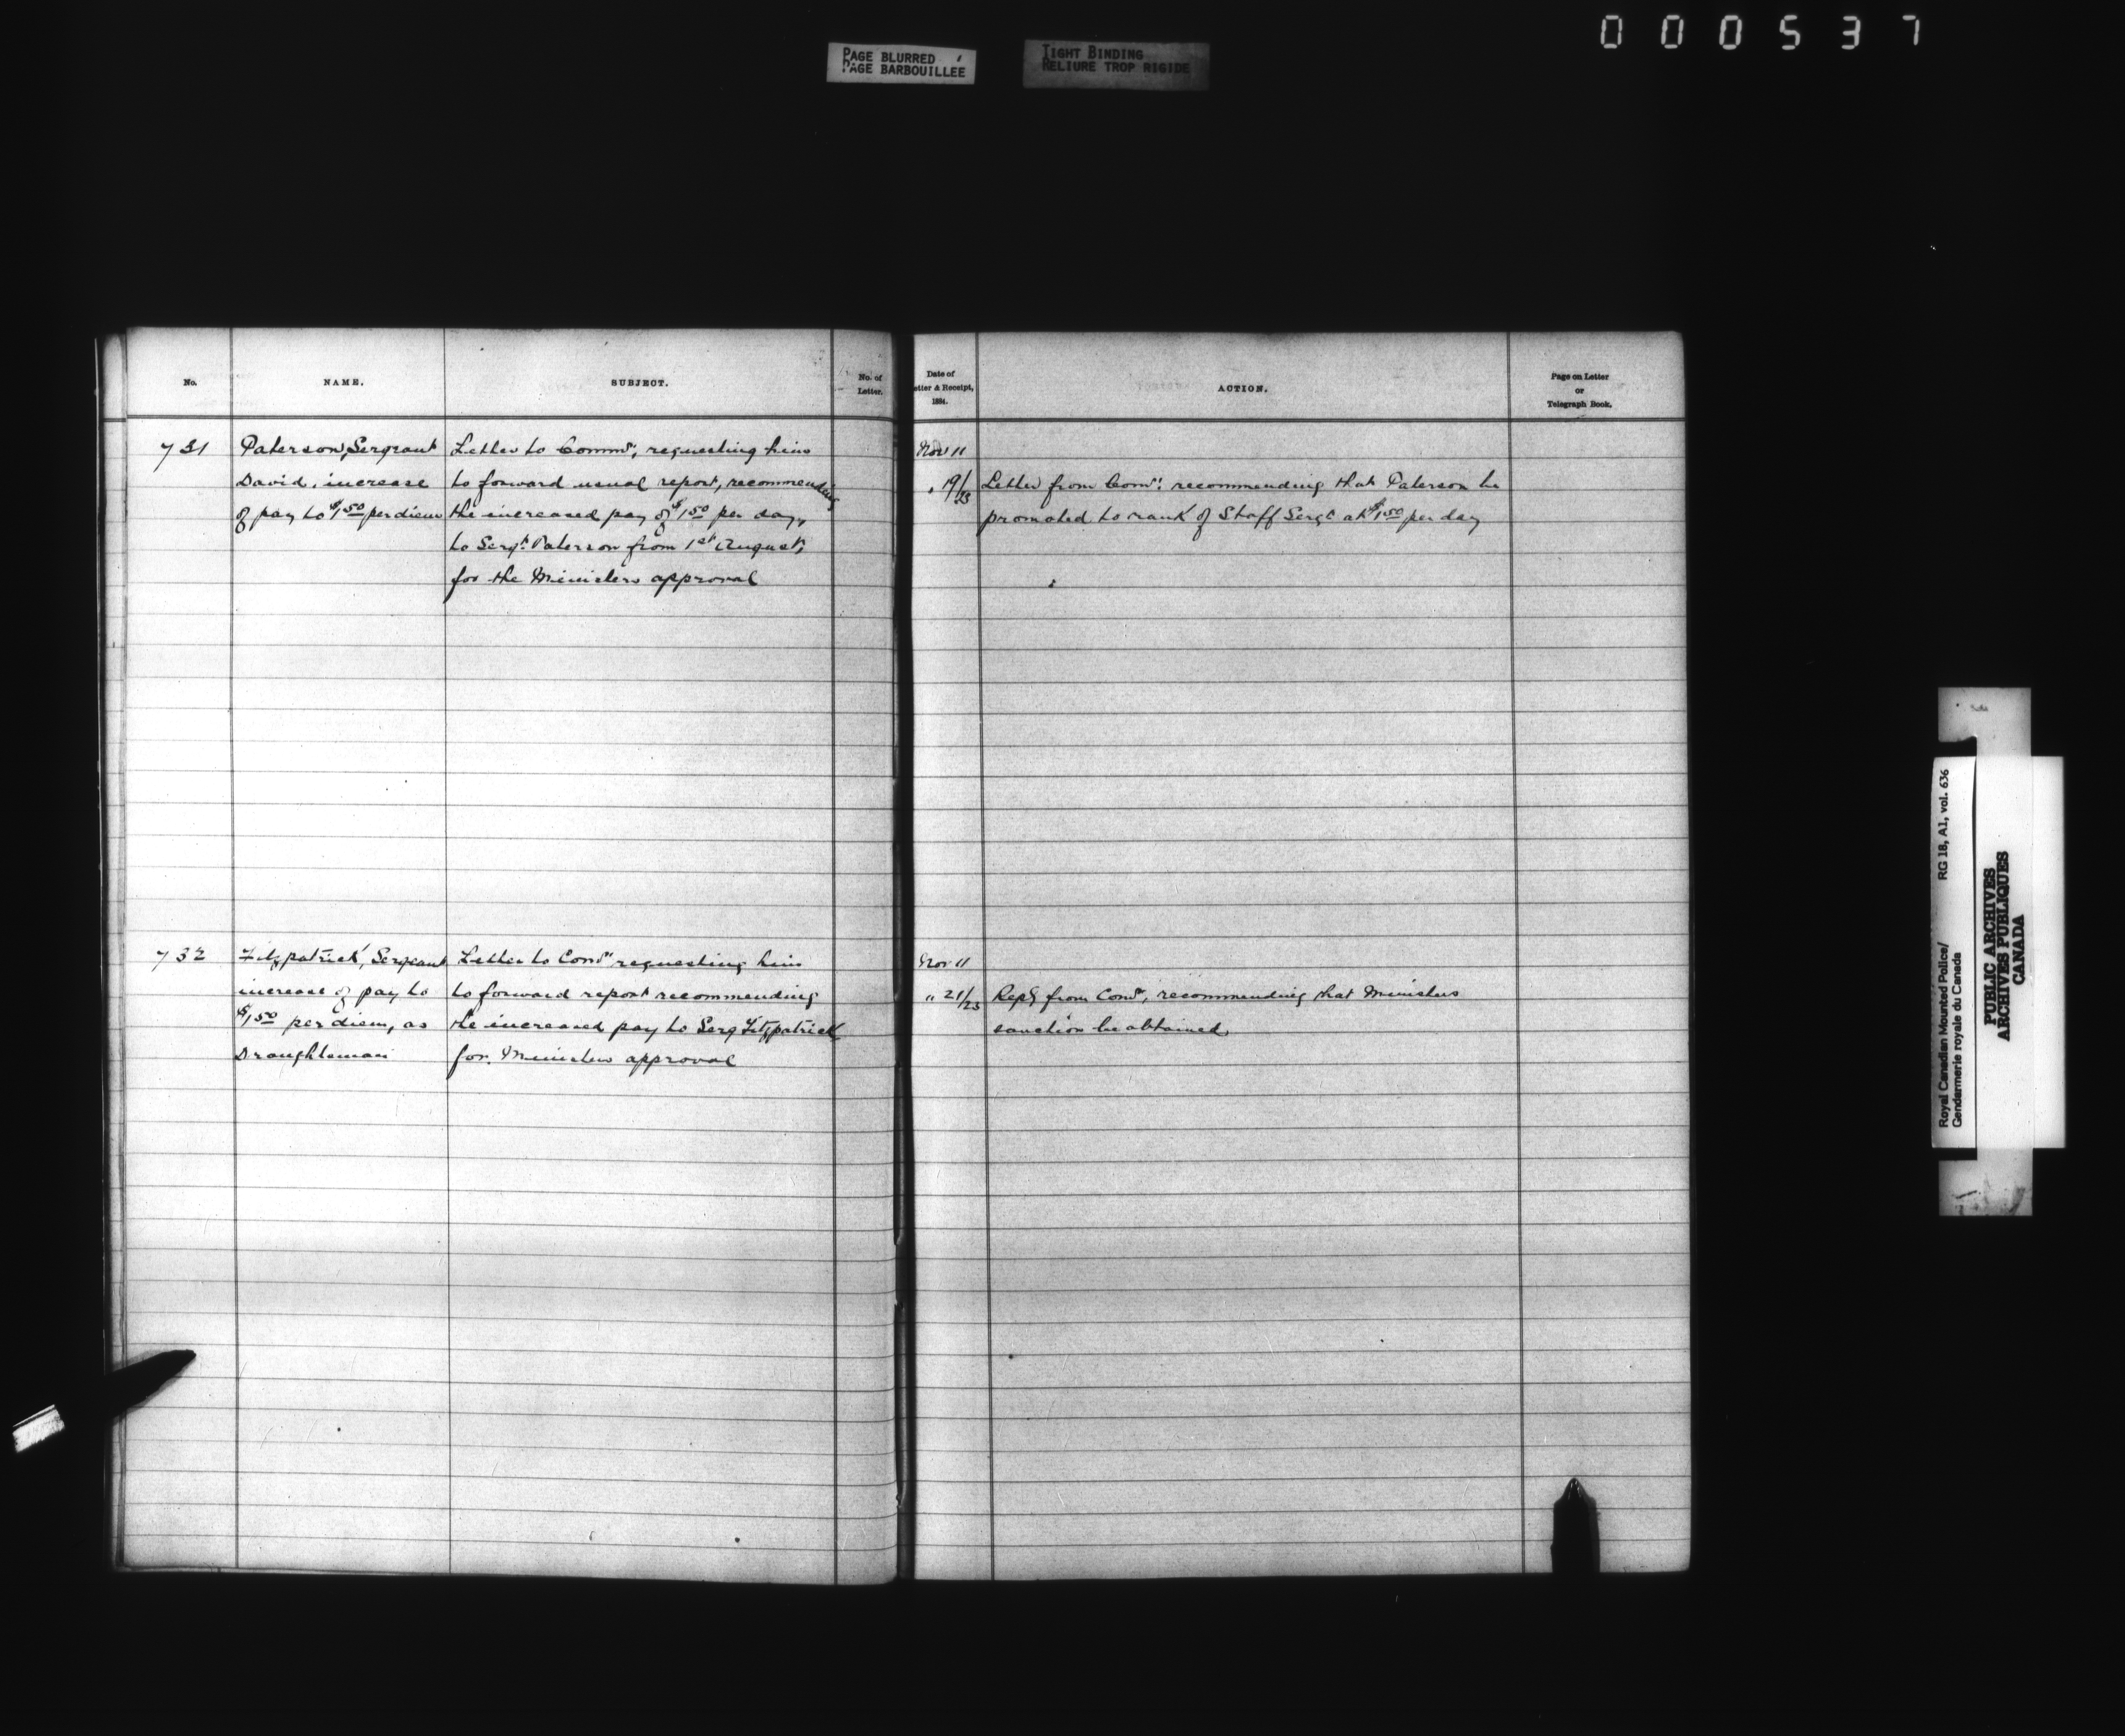 000537
PAGE BLURRED
PAGE BARBOUILLEE
TIGHT BINDING
RELIURE TROP RIGIDE
No.
NAME.
SUBJECT.
No. of
Letter.
731
Paterson, Sergeant
David, increase
of pay to $1.50 per diem
Letter to Commr, requesting him
to forward usual report, recommending
the increased pay of $1.50 per day,
to Sergt. Paterson from 1st August,
for the Ministers approval
732
Fitzpatrick, Sergeant
increase of pay to
$1.50 per diem, as
Draughtsman
Letter to Comr requesting him
to forward report recommending
the increased pay to Serg Fitzpatrick
for Ministers approval
Date of
etter & Receipt,
1884.
ACTION.
Page on Letter
or
Telegraph Book.
Nov 11
" 19/23
Letter from Comr: recommending that Paterson be
promoted to rank of Staff Sergt at $1.50 per day
Nov 11
" 21/25
Reply from Comr, recommending that Ministers
sanction be obtained
Royal Canadian Mounted Police/ RG 18, A1, vol. 636
Gendarmerie royale du Canada
PUBLIC ARCHIVES
ARCHIVES PUBLIQUES
CANADA